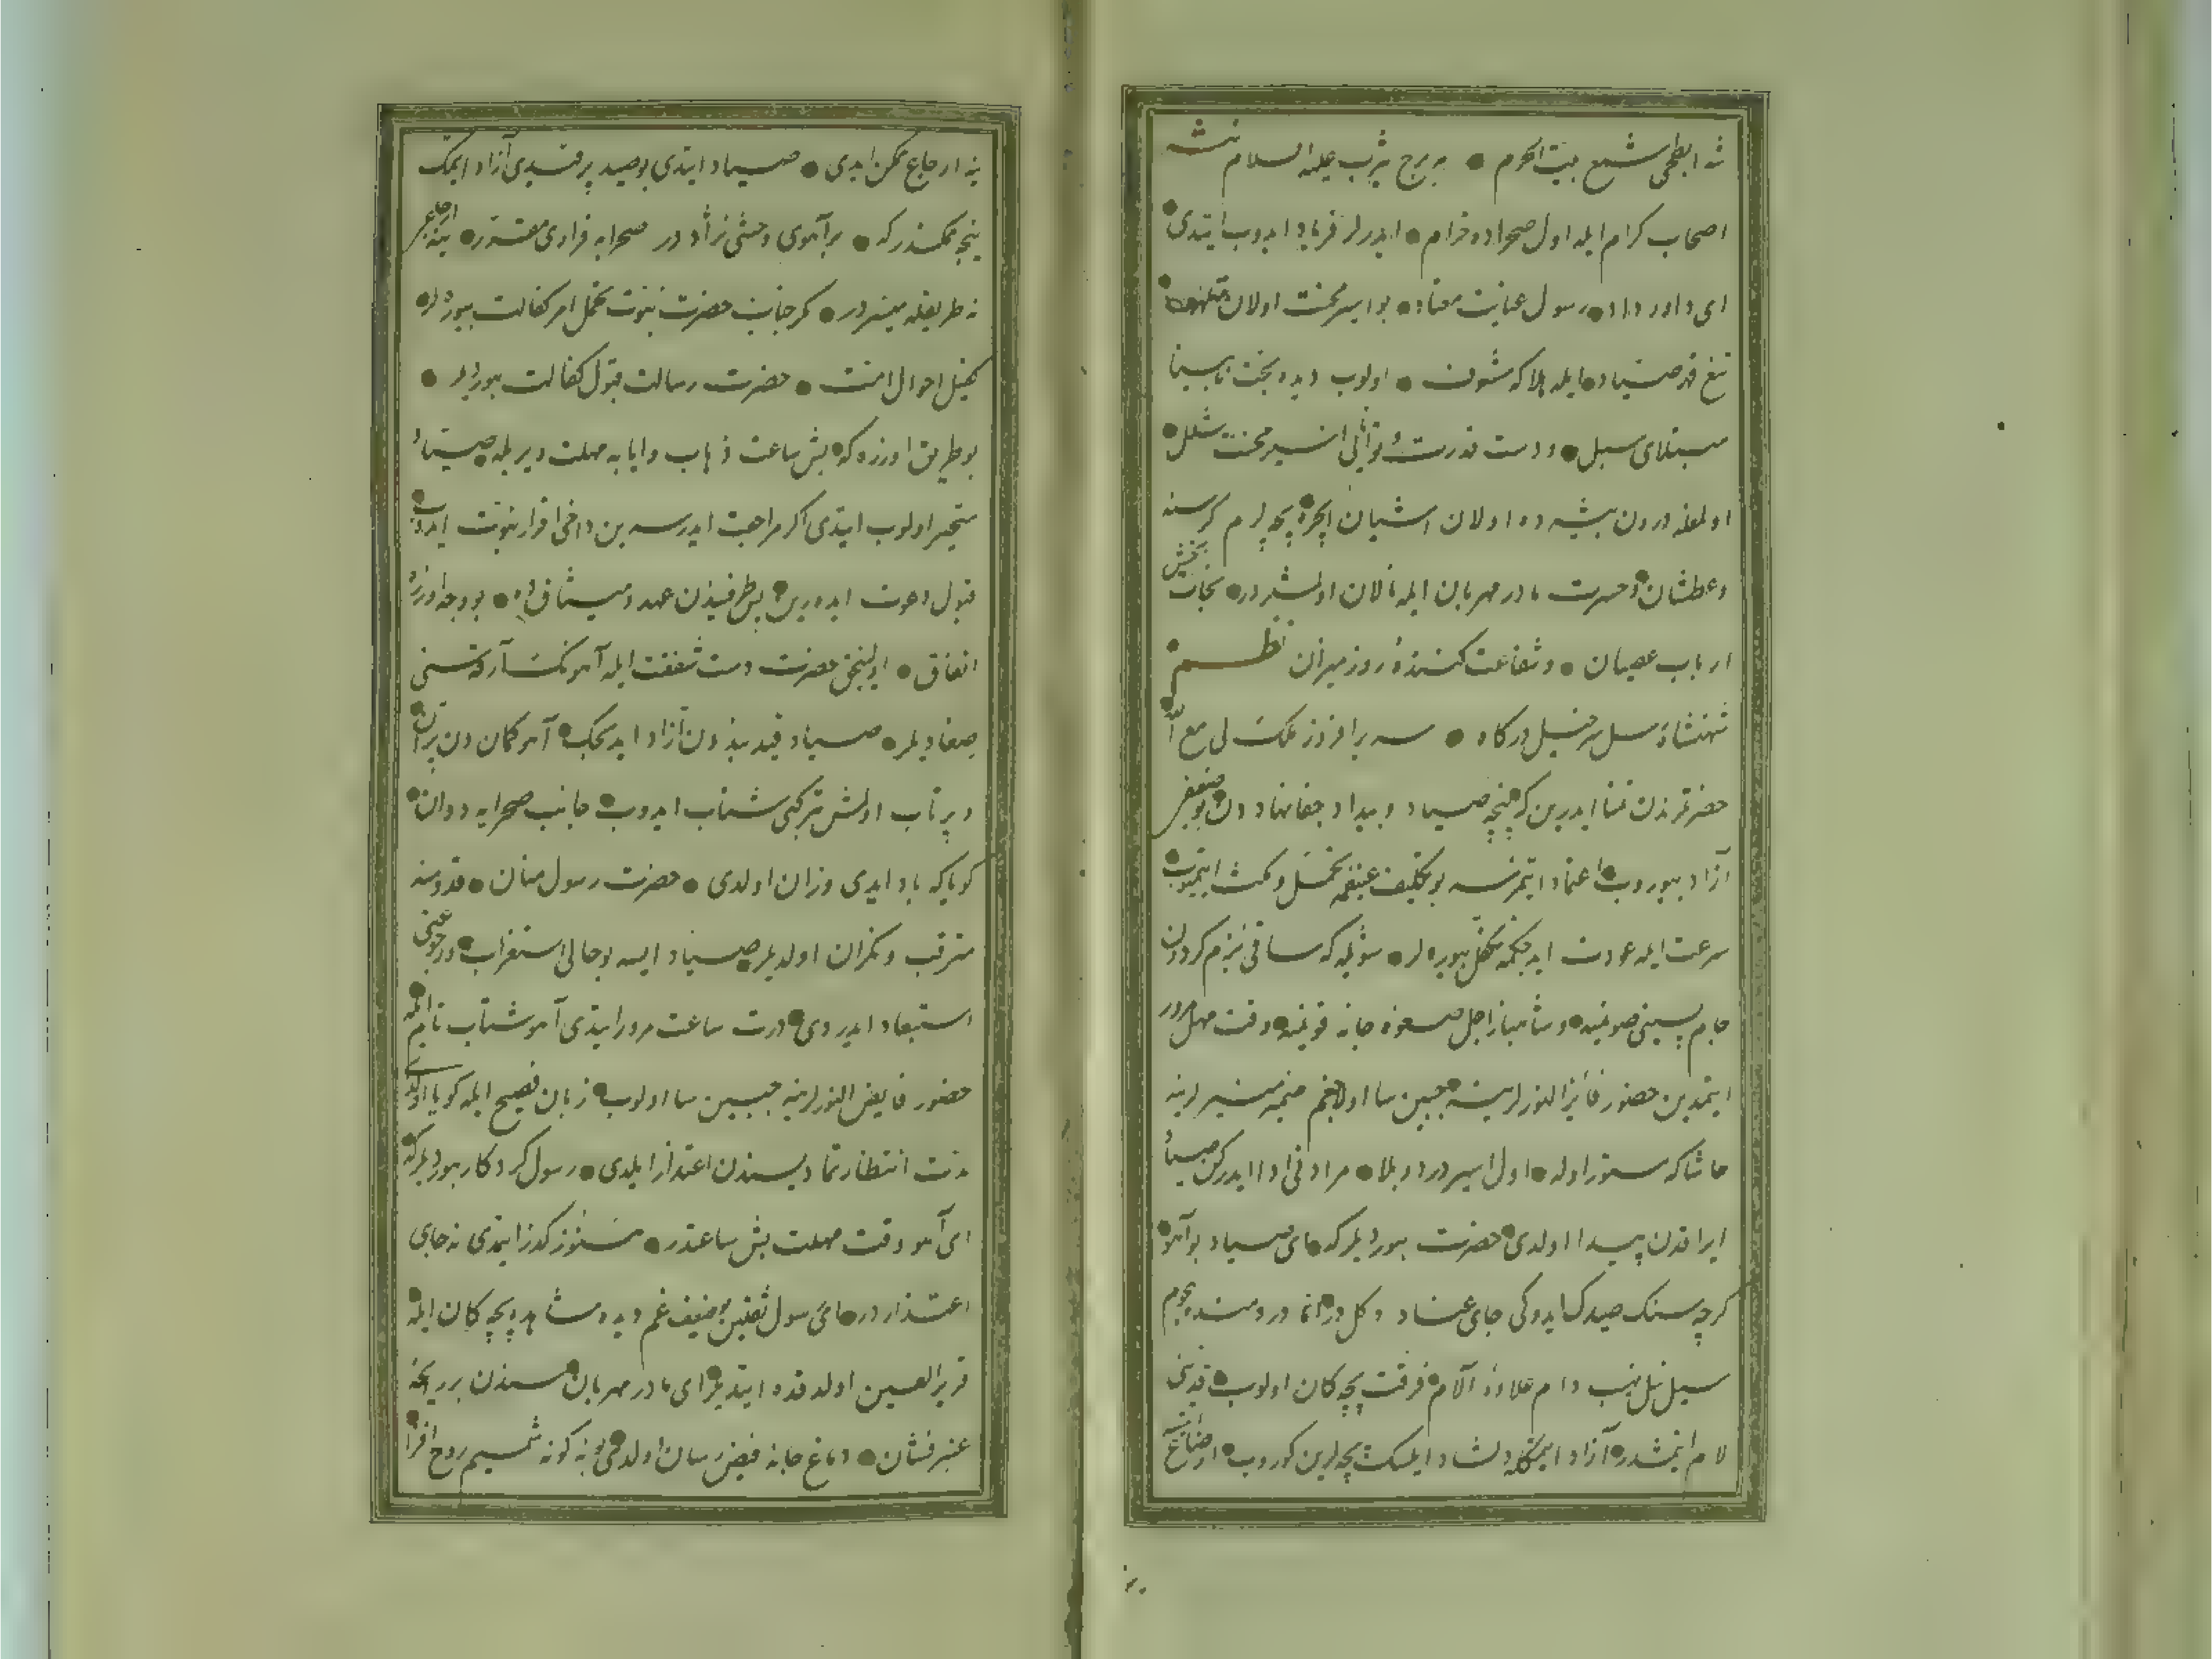 شه ابطحی شمع بیت الحرم • مه برج یثرب علیه السلام نثـــر
اصحاب کرام ایله اول صحراده خرام • ایدرلر فریاد ایدوب ایتدی •
ای داور داد • رسول عنایت معتاد • بو اسیر محنت اولان
تیغ قهر صیاد ایله هلاکه شوق • اولوب دیده بخت نابینا
مبتلای سبل • و دست قدرت و توانائی اسیر محنت شلل •
اولمغله درون بیشه ده اولان آشیان ایچره بچه لرم کرسنه
و عطشان و حسرت مادر مهربان ایله نالان اولمشلردر • نجات بخش
ارباب عصیان • و شفاعت کننده روز میزان نظــم
شهنشاه رسل خیل درکاه • سر برافروز ملک لی مع الله
حضرتکزدن تمنا ایدرین که پنجه صیاد و بیداد جفا نهاددن بو ضعیفی
آزاد بیوروب اعتماد ایتمزسه بو تکلیف عنیفه تحمل و مکث ایتمیوب
سرعت ایله عودت ایده جکمه تکفل بیوره لر • شویله که ساقی بزم کردون
جام پسینی صونمیه • و شاهباز اجل صعوه جانه قونمیه • وقت مهل مرور
ایتمدین حضور فائز النورلرینه جبین سا اولاجغم ضمیر منیرلرینه
حاشا که مستور اوله • اول اسیر درد و بلا • مراد فی ادا ایدرکن صیاد
ایراقدن پیدا اولدی حضرت بیوردیلر که ای صیاد بو آهو
کرچه سنک صیدک ایدوکی جای عناد دکل در اما دردمنده هجوم
سیل نیل نهیب دام علاوه آلام فرقت بچه کان اولوب قدینی
لام ایتمشدر آزاد ایتمکله دلشاد ایلسک بچه لرین کوروب
ینه ارجاع ممکن ایدی • صیاد ایتدی بو صید پر قیدی آزاد ایتمک
نیجه ممکندر که • بر آهوی وحشی نژاد در صحرایه فراری مقرر • ینه ارجاعی
نه طریقله میسر در • مکر جناب حضرت نبوت تحمل امر کفالت بیوره لر •
کفیل احوال امت • حضرت رسالت قبول کفالت بیوردیلر •
بو طریق اوزره که بش ساعت ذهاب و ایابه مهلت ویریله صیاد
متحیر اولوب ایتدی اکر مراجعت ایدرسه بن داخی اقرار نبوت ایدوب
قبول دعوت ایده رین بو طرفیندن عهد و میثاق • بو وجه اوزره
اتفاق • اولینجق حضرت دست شفقت ایله آهونک سر آرقه سنی
صغادیلر • صیاد قید بنددن آزاد ایدیجک آهو کماندن پران
و پرتاب اولمش تیر کبی شتاب ایدوب جانب صحرایه دوان
کویا که باد ایدی وزان اولدی • حضرت رسول منان • قدومنه
مترقب و نکران اولدیلر صیاد ایسه بو حالی استغراب و رجوعنی
استبعاد ایدردی درت ساعت مرور ایتدی آهو شتاب تام ایله
حضور فایض النورلرینه جبین سا اولوب زبان فصیح ایله کویا اولدی
مدت انتظار تمادیسندن اعتذار ایلدی • رسول کردکار بیوردیلر که
ای آهو وقت مهلت بش ساعتدر • هنوز کذر ایتمدی نه جای
اعتذار در ای رسول ثقلین بو ضعیف غم دیده مشاهده بچه کان ایله
قریر العین اولدقده ایتدیلر ای مادر مهربان سندن بر رایحه
عنبر فشان • دماغ جانه فیض رسان اولدی بو نه کونه شمیم روح افزا